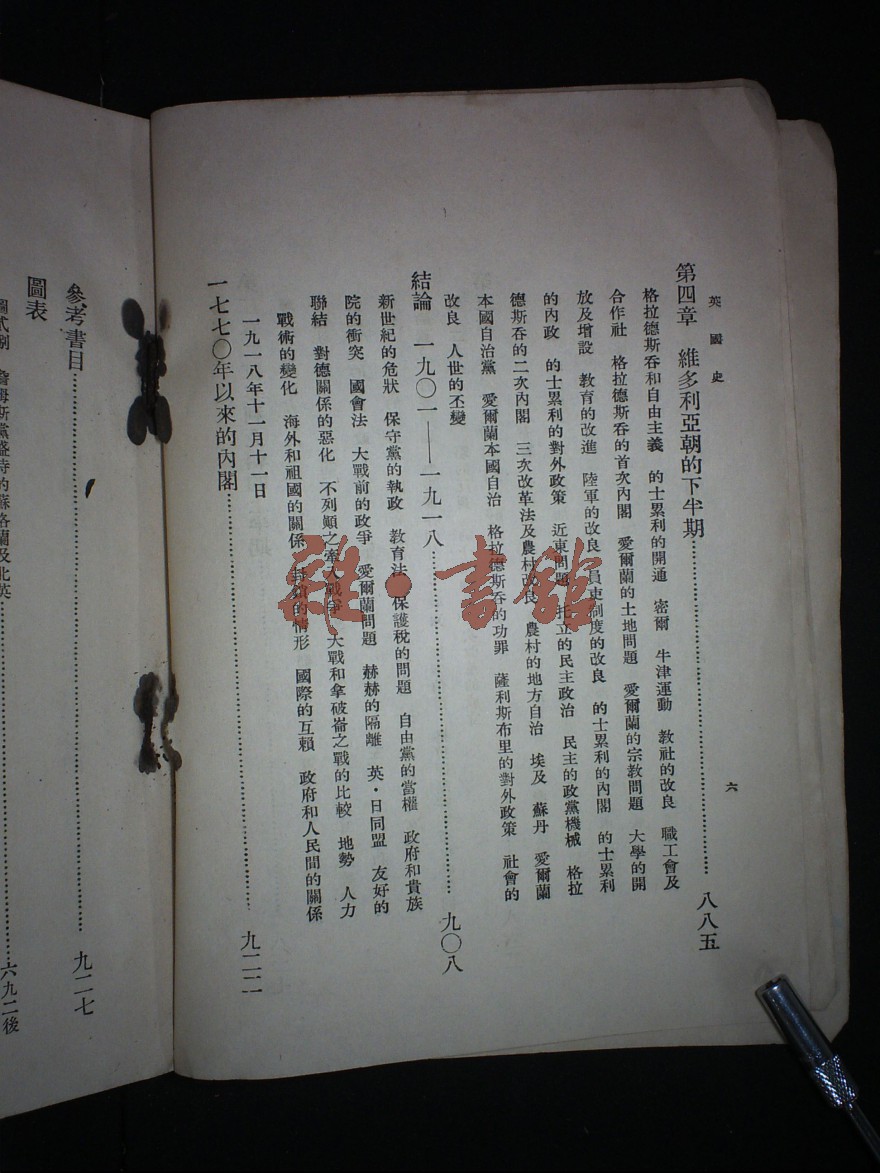 英國史
六
第四章 維多利亞朝的下半期……八八五
格拉德斯吞和自由主義 的士累利的開通 密爾 牛津運動 教社的改良 職工會及
合作社 格拉德斯吞的首次內閣 愛爾蘭的土地問題 愛爾蘭的宗教問題 大學的開
放及增設 教育的改進 陸軍的改良 員吏制度的改良 的士累利的內閣 的士累利
的內政 的士累利的對外政策 近東問題 托立的民主政治 民主的政黨機械 格拉
德斯吞的二次內閣 三次改革法及農村改良 農村的地方自治 埃及 蘇丹 愛爾蘭
本國自治黨 愛爾蘭本國自治 格拉德斯吞的功罪 薩利斯布里的對外政策 社會的
改良 人世的丕變
結論 一九〇一——一九一八……九〇八
新世紀的危狀 保守黨的執政 教育法 保護稅的問題 自由黨的當權 政府和貴族
院的衝突 國會法 大戰前的政爭 愛爾蘭問題 赫赫的隔離 英・日同盟 友好的
聯結 對德關係的惡化 不列顛之牽入戰爭 大戰和拿破崙之戰的比較 地勢 人力
戰術的變化 海外和祖國的關係 封鎖的情形 國際的互賴 政府和人民間的關係
一九一八年十一月十一日
一七七〇年以來的內閣……九二二
參考書目……九二七
圖表
黨盛時的蘇格蘭及北英……六九二後
雜・書館